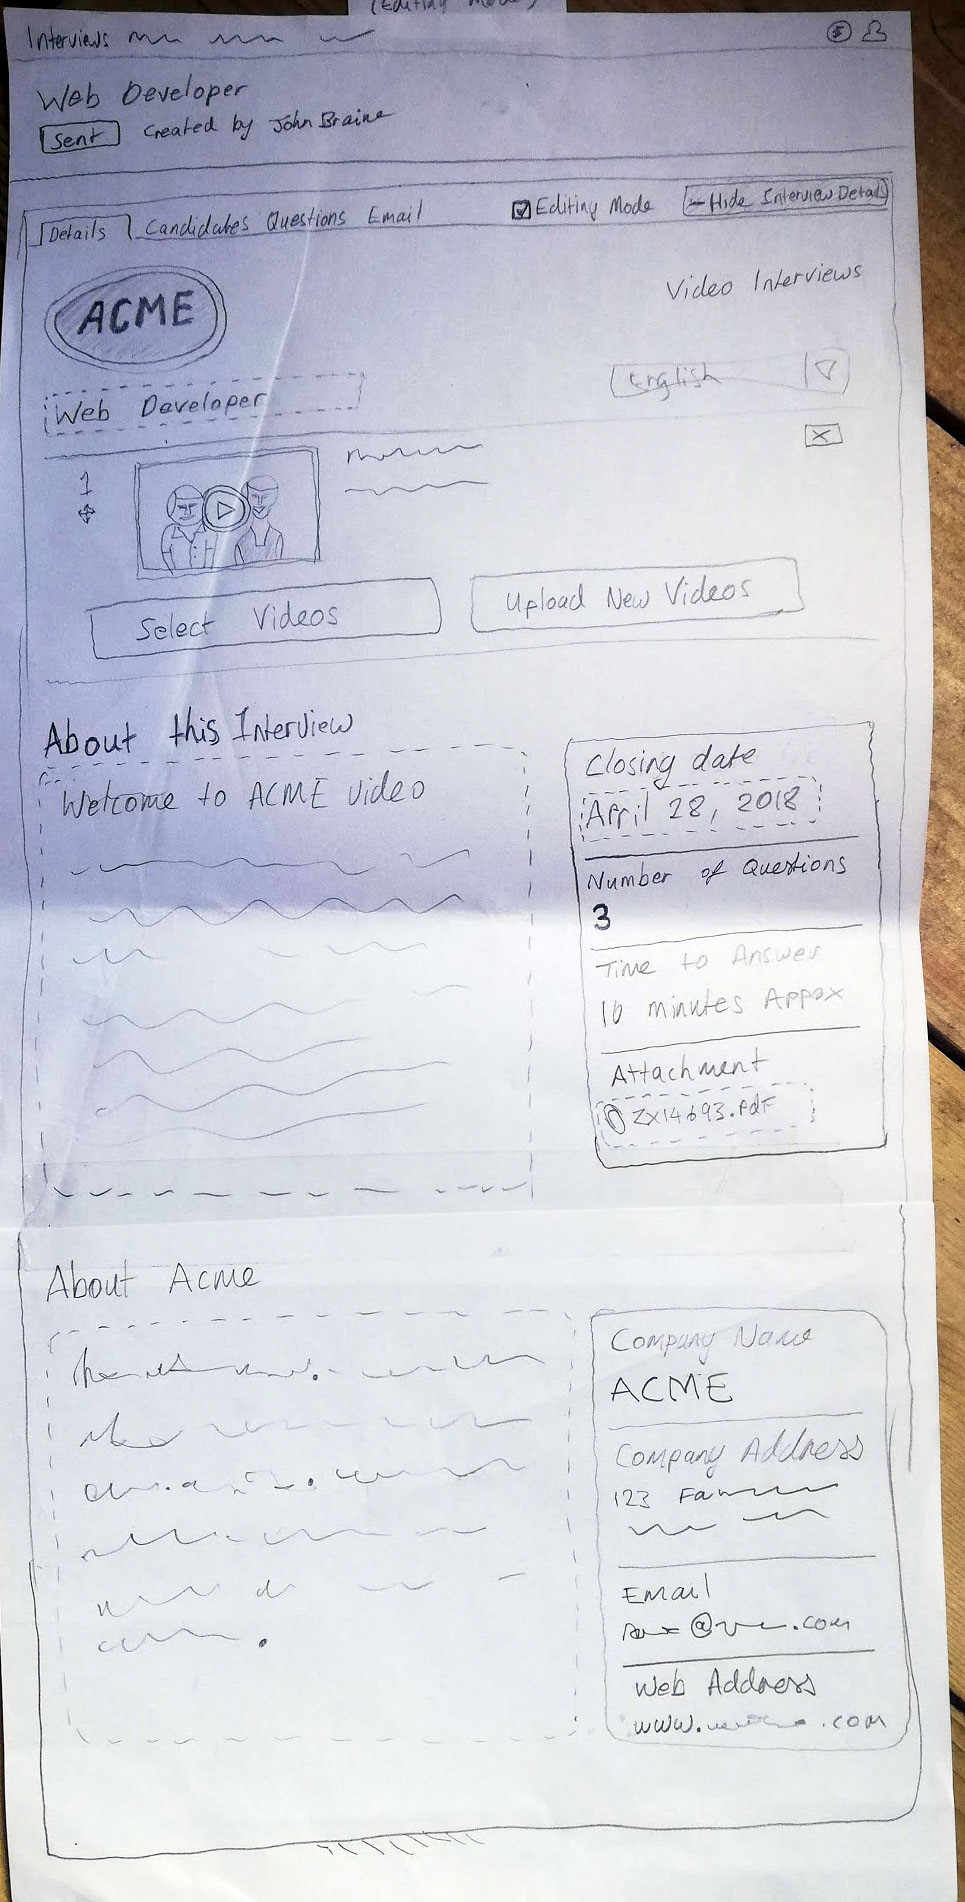 (Editing Mode)
Interviews
Web Developer
Sent Created by John Braine
Details Candidates Questions Email Editing Mode - Hide Interview Details
ACME
Video Interviews
English
Web Developer
X
1
Select Videos Upload New Videos
About this Interview
Welcome to ACME video
Closing date
April 28, 2018
Number of Questions
3
Time to Answer
10 minutes Appox
Attachment
ZX14693.pdf
About Acme
Company Name
ACME
Company Address
123
Email
@ .com
Web Address
www. .com